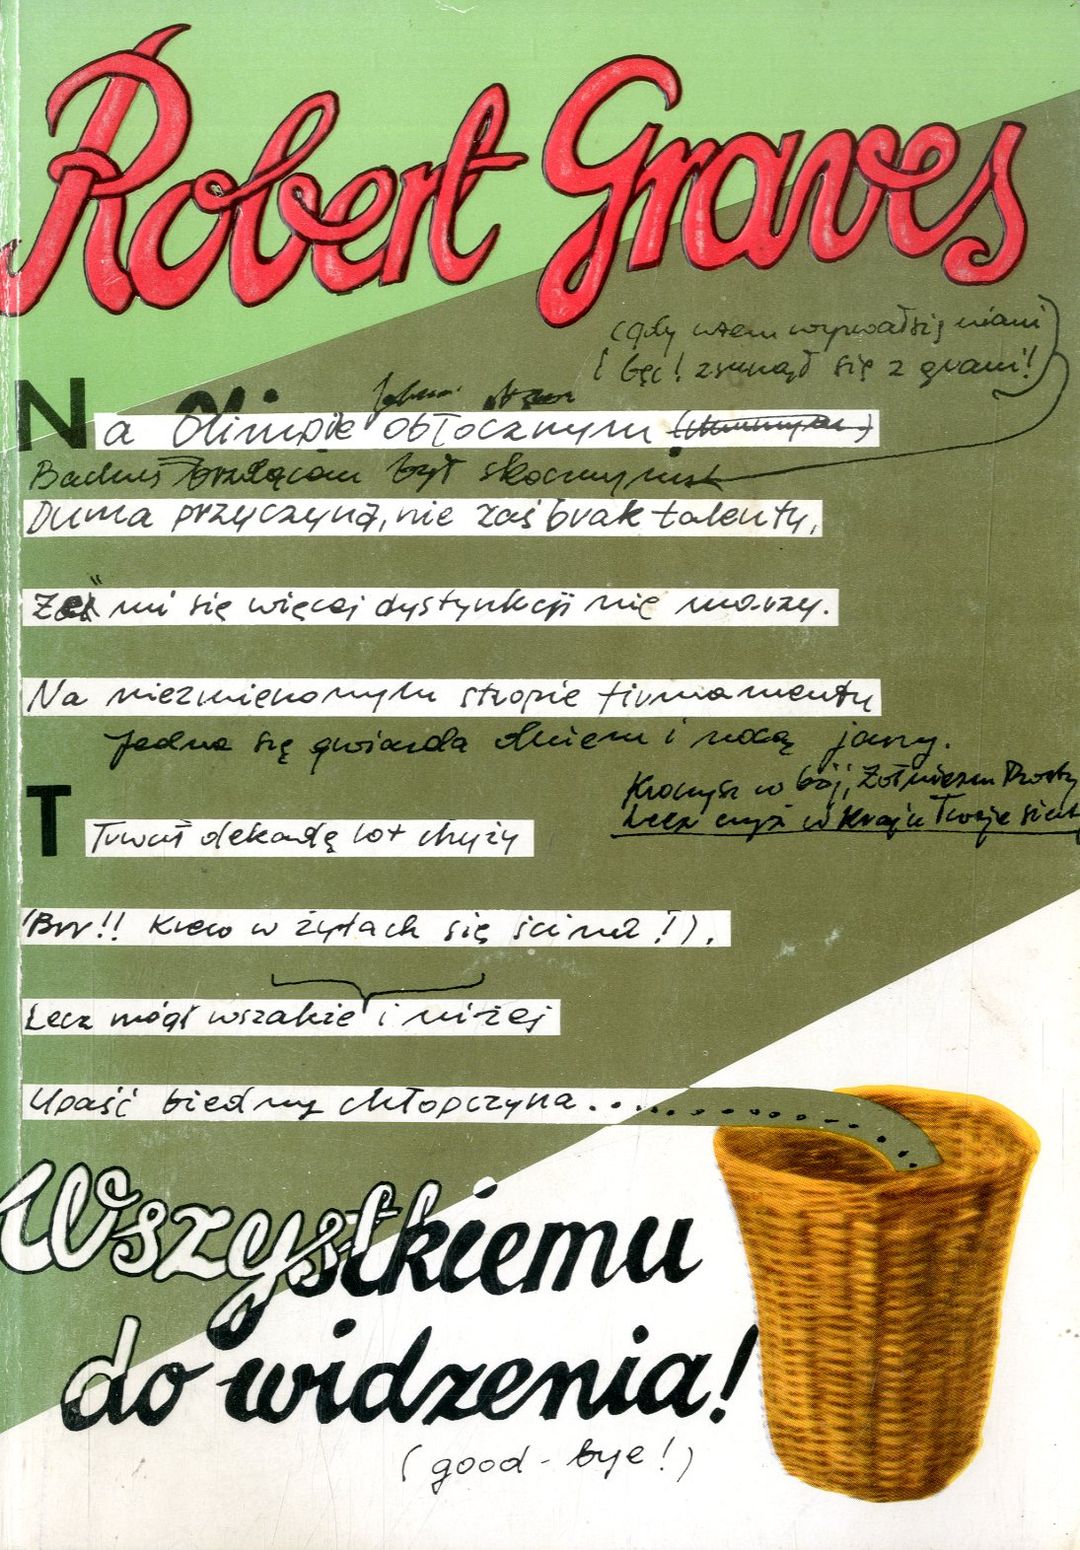 Robert Graves
(gdy wtem wyrwał się niani
i bęc! zsunął się z grani!)
Na Olimpie obłocznym
Bachus brzdącem był skocznym
Duma przyczyną, nie zaś brak talentu,
Że mi się więcej dystynkcji nie marzy.
Na niezmiennym stropie firmamentu
Jedna się gwiazda dniem i nocą jarzy.
Kroczysz w bój, Żołnierzu Prosty
Lecz czyż w Kraju Twoje
T
Trwał dekadę lot chyży
(Brr!! Krew w żyłach się ścina!).
Lecz mógł wszakże i niżej
Upaść biedny chłopczyna....
Wszystkiemu
do widzenia!
(good-bye!)